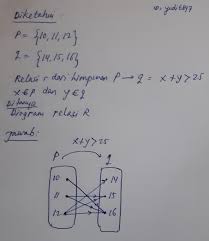 Diketahui
P = {10, 11, 12}
q = {14, 15, 16}
Relasi r dari himpunan P → q = x+y > 25
x ∈ P dan y ∈ q
Ditanya
Diagram relasi R
Jawab:
x+y > 25
P q
10 14
11 15
12 16